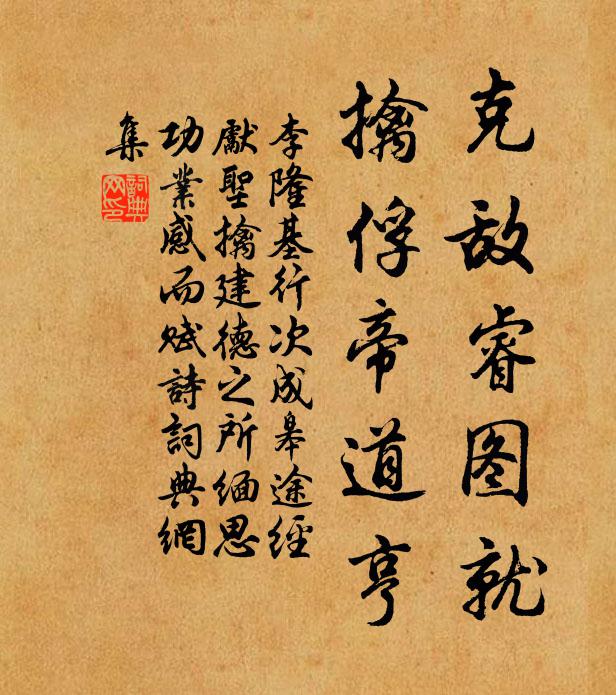 克敌睿图就
擒俘帝道亨
李隆基行次成皋途經
獻聖擒建德之所緬思
功業感而賦詩詞典網
集
詞典
网印